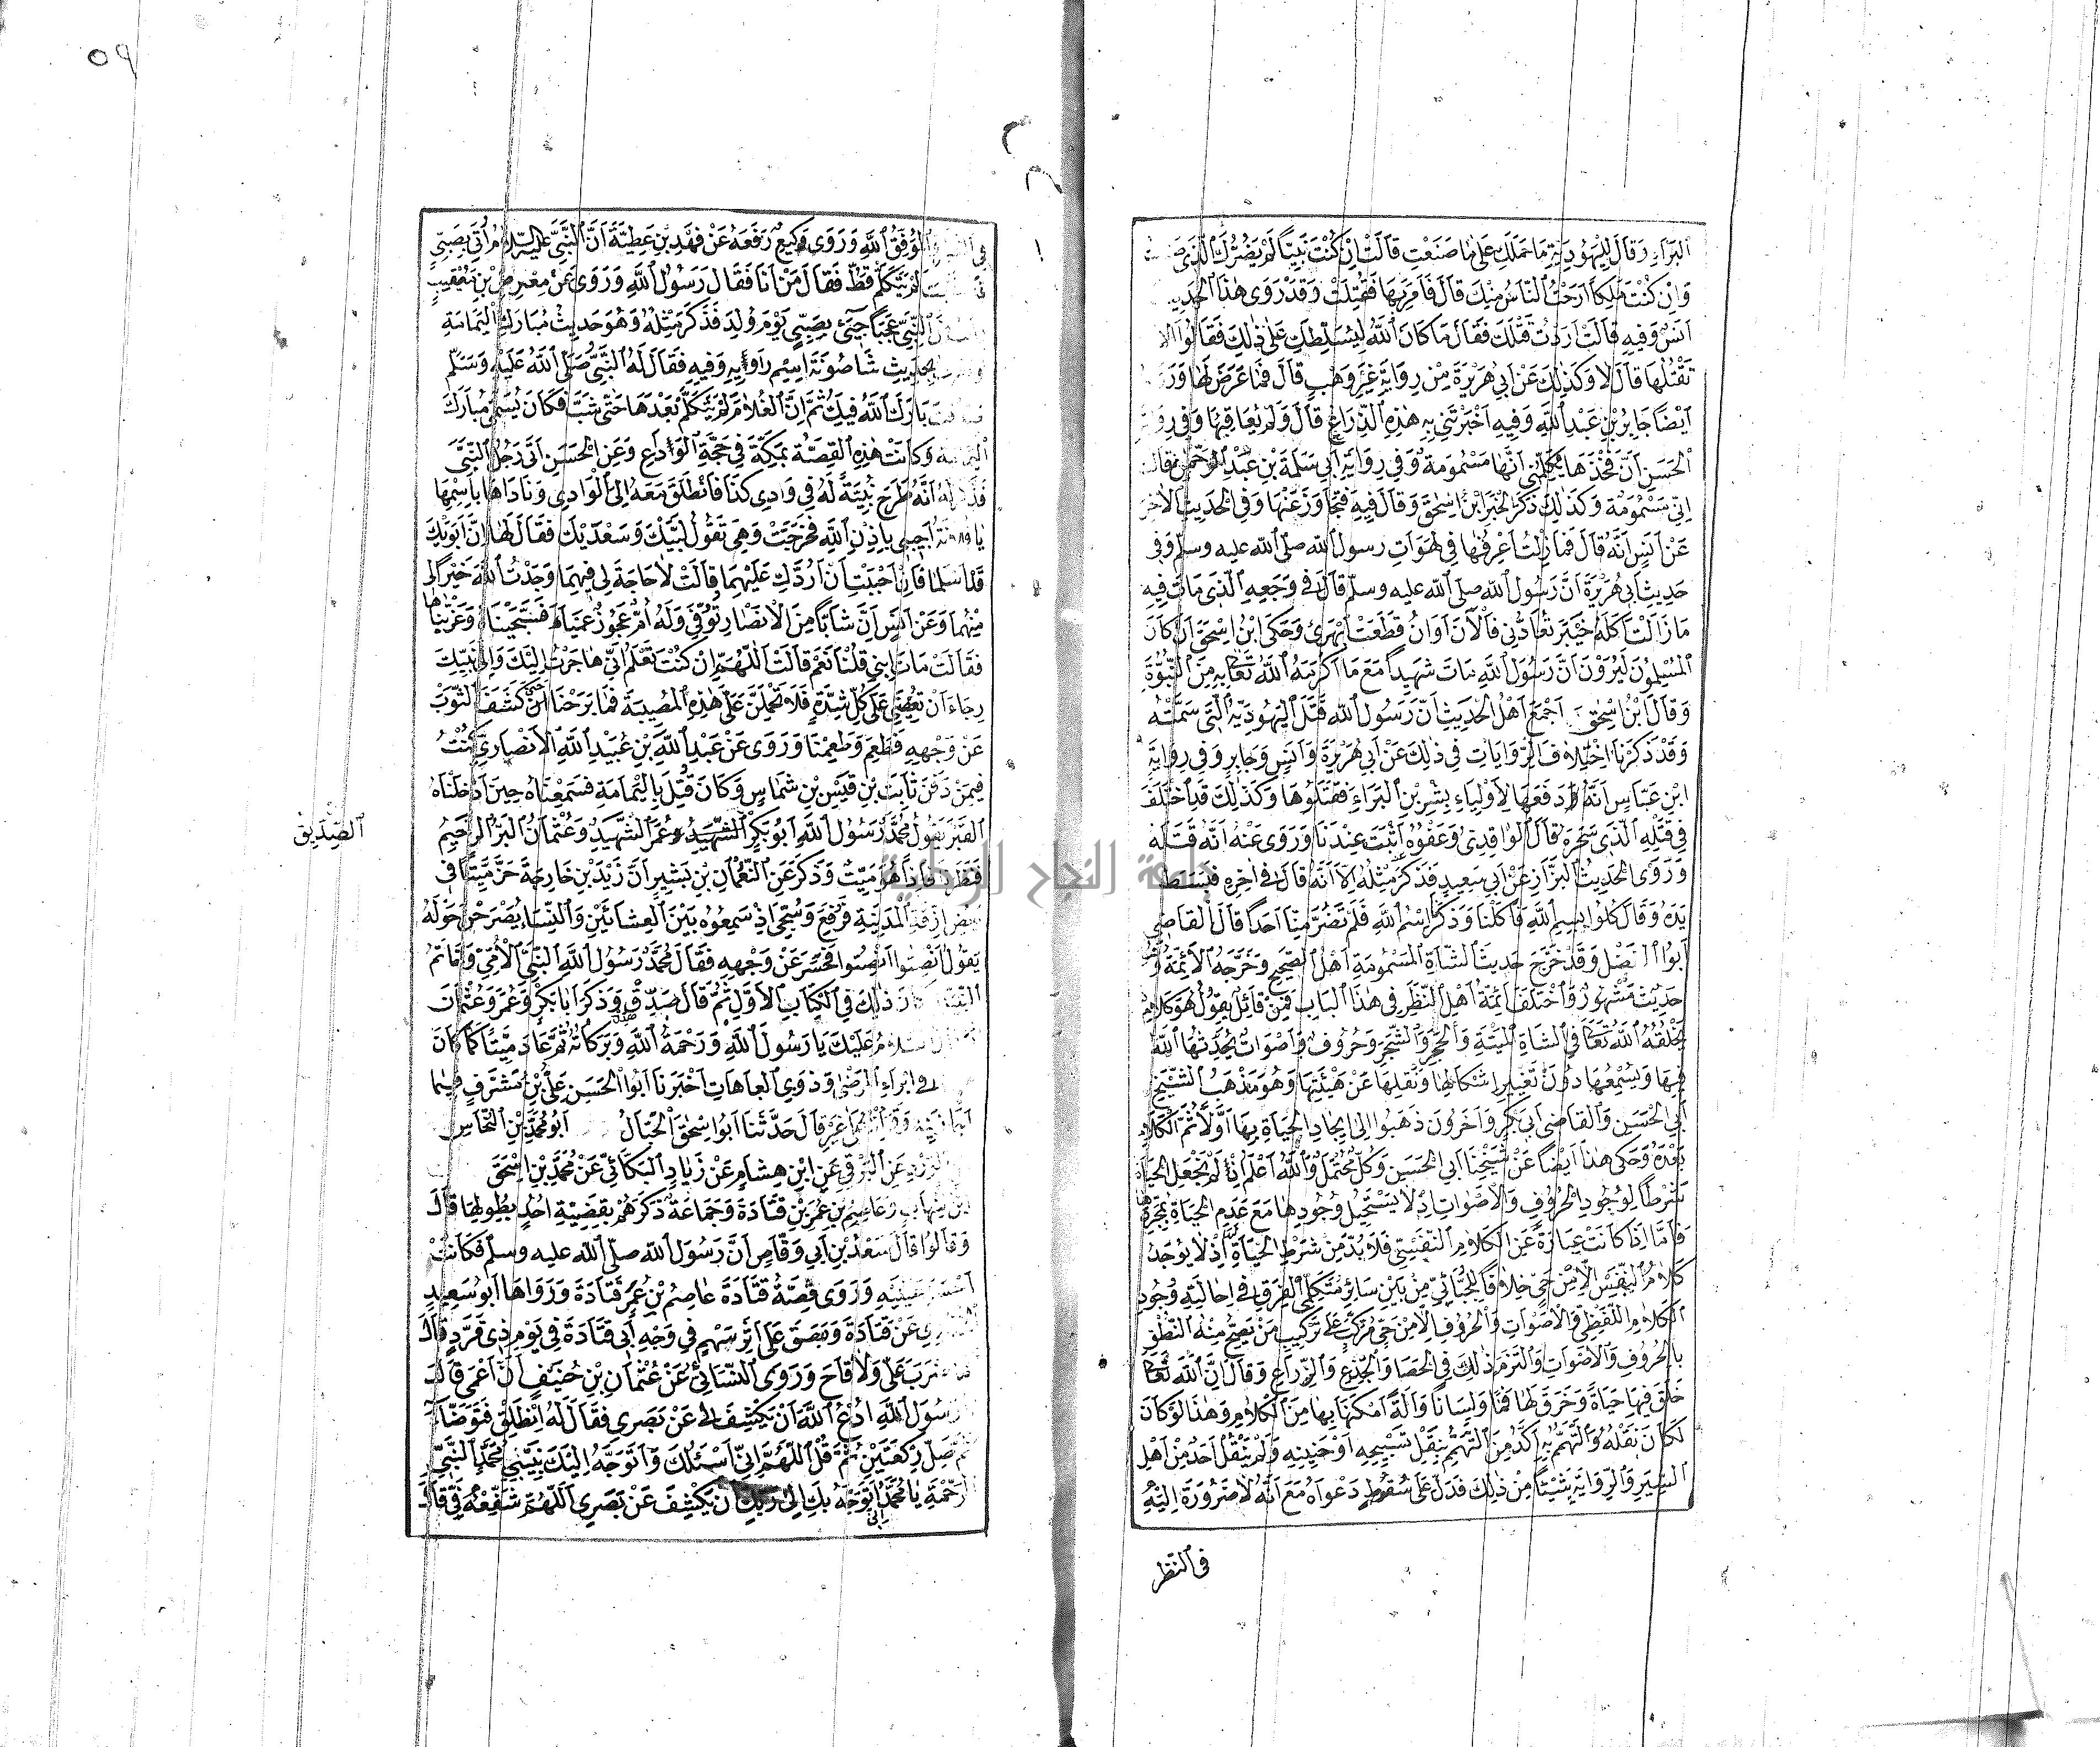 البَرَاءِ وَقَالَ لِلْيَهُودِيَّةِ مَا حَمَلَكِ عَلَى مَا صَنَعْتِ قَالَتْ اِنْ كُنْتَ نَبِيًّا لَمْ يَضُرَّكَ الَّذِي
وَاِنْ كُنْتَ مَلِكًا اَرَحْتُ النَّاسَ مِنْكَ قَالَ فَاَمَرَ بِهَا فَقُتِلَتْ وَقَدْ رَوَى هٰذَا الحَدِيثَ
اَنَسٌ وَفِيهِ قَالَتْ اَرَدْتُ قَتْلَكَ فَقَالَ مَا كَانَ اللّٰهُ لِيُسَلِّطَكِ عَلَى ذٰلِكَ فَقَالُوا اَلَا
نَقْتُلُهَا قَالَ لَا وَكَذٰلِكَ عَنْ اَبِي هُرَيْرَةَ مِنْ رِوَايَةِ غَيْرِ وَهْبٍ قَالَ فَمَا عَرَضَ لَهَا
اَيْضًا جَابِرُ بْنُ عَبْدِ اللّٰهِ وَفِيهِ اَخْبَرَتْنِي بِهِ هٰذِهِ الذِّرَاعُ قَالَ وَلَمْ يُعَاقِبْهَا وَفِي رِوَايَةِ
الحَسَنِ اَنَّ فَخِذَهَا تُكَلِّمُنِي اَنَّهَا مَسْمُومَةٌ وَفِي رِوَايَةِ اَبِي سَلَمَةَ بْنِ عَبْدِ الرَّحْمٰنِ قَالَتْ
اِنِّي مَسْمُومَةٌ وَكَذٰلِكَ ذَكَرَ الخَبَرَ ابْنُ اِسْحٰقَ وَقَالَ فِيهِ فَتَجَاوَزَ عَنْهَا وَفِي الحَدِيثِ الاٰخَرِ
عَنْ اَنَسٍ اَنَّهُ قَالَ فَمَا زِلْتُ اَعْرِفُهَا فِي لَهَوَاتِ رسول الله صلّى الله عليه وسلم وَفِي
حَدِيثِ اَبِي هُرَيْرَةَ اَنَّ رَسُولَ الله صلّى الله عليه وسلّم قَالَ فِي وَجَعِهِ الَّذِي مَاتَ فِيهِ
مَا زَالَتْ اُكْلَةُ خَيْبَرَ تُعَادُّنِي فَالْآنَ اَوَانُ قَطَعَتْ اَبْهَرِي وَحَكَى ابْنُ اِسْحٰقَ اِنْ كَانَ
المُسْلِمُونَ لَيَرَوْنَ اَنَّ رَسُولَ اللّٰهِ مَاتَ شَهِيدًا مَعَ مَا اَكْرَمَهُ اللّٰهُ تَعَالَى بِهِ مِنَ النُّبُوَّةِ
وَقَالَ ابْنُ اِسْحٰقَ اَجْمَعَ اَهْلُ الحَدِيثِ اَنَّ رَسُولَ الله قَتَلَ اليَهُودِيَّةَ الَّتِي سَمَّتْهُ
وَقَدْ ذَكَرْنَا اخْتِلَافَ الرِّوَايَاتِ فِي ذٰلِكَ عَنْ اَبِي هُرَيْرَةَ وَاَنَسٍ وَجَابِرٍ وَفِي رِوَايَةِ
ابْنِ عَبَّاسٍ اَنَّهُ دَفَعَهَا لِاَوْلِيَاءِ بِشْرِ بْنِ البَرَاءِ فَقَتَلُوهَا وَكَذٰلِكَ قَدِ اخْتُلِفَ
فِي قَتْلِهِ الَّذِي سَحَرَهُ قَالَ الوَاقِدِيُّ وَعَفْوُهُ اَثْبَتُ عِنْدَنَا وَرَوَى عَنْهُ اَنَّهُ قَتَلَهُ
وَرَوَى الحَدِيثَ البَزَّارُ عَنْ اَبِي سَعِيدٍ فَذَكَرَ مِثْلَهُ اِلَّا اَنَّهُ قَالَ فِي اٰخِرِهِ فَبَسَطَ
يَدَهُ وَقَالَ كُلُوا بِسْمِ اللّٰهِ فَاَكَلْنَا وَذَكَرَ اسْمَ اللّٰهِ فَلَمْ تَضُرَّ مِنَّا اَحَدًا قَالَ القَاضِي
اَبُو الفَضْلِ وَقَدْ خَرَّجَ حَدِيثَ الشَّاةِ المَسْمُومَةِ اَهْلُ الصَّحِيحِ وَخَرَّجَهُ الاَئِمَّةُ وَهُوَ
حَدِيثٌ مَشْهُورٌ وَاخْتَلَفَ اَئِمَّةُ اَهْلِ النَّظَرِ فِي هٰذَا البَابِ فَمِنْ قَائِلٍ يَقُولُ هُوَ كَلَامٌ
يَخْلُقُهُ اللّٰهُ تَعَالَى فِي الشَّاةِ المَيْتَةِ وَالحَجَرِ وَالشَّجَرِ وَحُرُوفٌ وَاَصْوَاتٌ يُحْدِثُهَا اللّٰهُ
فِيهَا وَيُسْمِعُهَا دُونَ تَغْيِيرِ اَشْكَالِهَا وَنَقْلِهَا عَنْ هَيْئَتِهَا وَهُوَ مَذْهَبُ الشَّيْخِ
اَبِي الحَسَنِ وَالقَاضِي اَبِي بَكْرٍ وَاٰخَرُونَ ذَهَبُوا اِلَى اِيجَادِ الحَيَاةِ بِهَا اَوَّلًا ثُمَّ الكَلَامِ
بَعْدَهُ وَحَكَى هٰذَا اَيْضًا عَنْ شَيْخِنَا اَبِي الحَسَنِ وَكُلٌّ مُحْتَمَلٌ وَاللّٰهُ اَعْلَمُ اِذْ لَمْ نَجْعَلِ الحَيَاةَ
شَرْطًا لِوُجُودِ الحُرُوفِ وَالاَصْوَاتِ اِذْ لَا يَسْتَحِيلُ وُجُودُهَا مَعَ عَدَمِ الحَيَاةِ بِمُجَرَّدِهَا
فَاَمَّا اِذَا كَانَتْ عِبَارَةً عَنِ الكَلَامِ النَّفْسِيِّ فَلَا بُدَّ مِنْ شَرْطِ الحَيَاةِ اِذْ لَا يُوجَدُ
كَلَامُ النَّفْسِ اِلَّا مِنْ حَيٍّ خِلَافًا لِلْجُبَّائِيِّ مِنْ بَيْنِ سَائِرِ مُتَكَلِّمِي الفِرَقِ فِي اِحَالَتِهِ وُجُودَ
الكَلَامِ اللَّفْظِيِّ وَالاَصْوَاتِ وَالحُرُوفِ اِلَّا مِنْ حَيٍّ مُرَكَّبٍ عَلَى تَرْكِيبِ مَنْ يَصِحُّ مِنْهُ النُّطْقُ
بِالحُرُوفِ وَالاَصْوَاتِ وَالتَزَمَ ذٰلِكَ فِي الحَصَا وَالجِذْعِ وَالذِّرَاعِ وَقَالَ اِنَّ اللّٰهَ تَعَالَى
خَلَقَ فِيهَا حَيَاةً وَخَرَقَ لَهَا فَمًا وَلِسَانًا وَاٰلَةً اَمْكَنَهَا بِهَا مِنَ الكَلَامِ وَهٰذَا لَوْ كَانَ
لَكَانَ نَقْلُهُ وَالتَّهَمُّمُ بِهِ اٰكَدَ مِنَ التَّهَمُّمِ بِنَقْلِ تَسْبِيحِهِ اَوْ حَنِينِهِ وَلَمْ يَنْقُلْ اَحَدٌ مِنْ اَهْلِ
السِّيَرِ وَالرِّوَايَةِ شَيْئًا مِنْ ذٰلِكَ فَدَلَّ عَلَى سُقُوطِ دَعْوَاهُ مَعَ اَنَّهُ لَا ضَرُورَةَ اِلَيْهِ
فى النّظر
٥٩
المُوَفِّقُ اللّٰهُ وَرَوَى وَكِيعٌ رَفَعَهُ عَنْ فَهْدِ بْنِ عَطِيَّةَ اَنَّ النَّبِيَّ عليه السّلام اُتِيَ بِصَبِيٍّ
لَمْ يَتَكَلَّمْ قَطُّ فَقَالَ مَنْ اَنَا فَقَالَ رَسُولُ اللّٰهِ وَرَوَى عَنْ مُعَرِّضِ بْنِ مُعَيْقِيبٍ
النَّبِيِّ عَجَبًا جِيءَ بِصَبِيٍّ يَوْمَ وُلِدَ فَذَكَرَ مِثْلَهُ وَهُوَ حَدِيثُ مُبَارَكِ اليَمَامَةِ
بِحَدِيثِ شَاصُونَةَ اِسْمِ رَاوِيهِ وَفِيهِ فَقَالَ لَهُ النَّبِيُّ صَلَّى اللّٰهُ عَلَيْهِ وَسَلَّمَ
بَارَكَ اللّٰهُ فِيكَ ثُمَّ اِنَّ الغُلَامَ لَمْ يَتَكَلَّمْ بَعْدَهَا حَتَّى شَبَّ فَكَانَ يُسَمَّى مُبَارَكَ
اليَمَامَةِ وَكَانَتْ هٰذِهِ القِصَّةُ بِمَكَّةَ فِي حَجَّةِ الوَدَاعِ وَعَنِ الحَسَنِ اَتَى رَجُلٌ النَّبِيَّ
فَذَكَرَ لَهُ اَنَّهُ طَرَحَ بُنَيَّةً لَهُ فِي وَادِي كَذَا فَانْطَلَقَ مَعَهُ اِلَى الوَادِي وَنَادَاهَا بِاسْمِهَا
يَا فُلَانَةُ اَجِيبِي بِاِذْنِ اللّٰهِ فَخَرَجَتْ وَهِيَ تَقُولُ لَبَّيْكَ وَسَعْدَيْكَ فَقَالَ لَهَا اِنَّ اَبَوَيْكِ
قَدْ اَسْلَمَا فَاِنْ اَحْبَبْتِ اَنْ اَرُدَّكِ عَلَيْهِمَا قَالَتْ لَا حَاجَةَ لِي فِيهِمَا وَجَدْتُ اللّٰهَ خَيْرًا لِي
مِنْهُمَا وَعَنْ اَنَسٍ اَنَّ شَابًّا مِنَ الاَنْصَارِ تُوُفِّيَ وَلَهُ اُمٌّ عَجُوزٌ عَمْيَاءُ فَسَجَّيْنَاهُ وَعَزَّيْنَاهَا
فَقَالَتْ مَاتَ ابْنِي قُلْنَا نَعَمْ قَالَتْ اللّٰهُمَّ اِنْ كُنْتَ تَعْلَمُ اَنِّي هَاجَرْتُ اِلَيْكَ وَاِلَى نَبِيِّكَ
رَجَاءَ اَنْ تُعِينَنِي عَلَى كُلِّ شِدَّةٍ فَلَا تَحْمِلَنَّ عَلَيَّ هٰذِهِ المُصِيبَةَ فَمَا بَرِحْنَا اَنْ كَشَفَ الثَّوْبَ
عَنْ وَجْهِهِ فَطَعِمَ وَطَعِمْنَا وَرَوَى عَنْ عَبْدِ اللّٰهِ بْنِ عُبَيْدِ اللّٰهِ الاَنْصَارِيِّ كُنْتُ
فِيمَنْ دَفَنَ ثَابِتَ بْنَ قَيْسِ بْنِ شَمَّاسٍ وَكَانَ قُتِلَ بِاليَمَامَةِ فَسَمِعْنَاهُ حِينَ اَدْخَلْنَاهُ
القَبْرَ يَقُولُ مُحَمَّدٌ رَسُولُ اللّٰهِ اَبُو بَكْرٍ الشَّهِيدُ وَعُمَرُ الشَّهِيدُ وَعُثْمَانُ البَرُّ الرَّحِيمُ
الصِّدِّيق
فَنَظَرْنَا فَاِذَا هُوَ مَيِّتٌ وَذَكَرَ عَنِ النُّعْمَانِ بْنِ بَشِيرٍ اَنَّ زَيْدَ بْنَ خَارِجَةَ خَرَّ مَيِّتًا فِي
بَعْضِ اَزِقَّةِ المَدِينَةِ فَرُفِعَ وَسُجِّيَ اِذْ سَمِعُوهُ بَيْنَ العِشَائَيْنِ وَالنِّسَاءُ يَصْرُخْنَ حَوْلَهُ
يَقُولُ اَنْصِتُوا اَنْصِتُوا فَحُسِرَ عَنْ وَجْهِهِ فَقَالَ مُحَمَّدٌ رَسُولُ اللّٰهِ النَّبِيُّ الاُمِّيُّ وَخَاتَمُ
النَّبِيِّينَ كَانَ ذٰلِكَ فِي الكِتَابِ الاَوَّلِ ثُمَّ قَالَ صَدَقَ صَدَقَ وَذَكَرَ اَبَا بَكْرٍ وَعُمَرَ وَعُثْمَانَ
السَّلَامُ عَلَيْكَ يَا رَسُولَ اللّٰهِ وَرَحْمَةُ اللّٰهِ وَبَرَكَاتُهُ ثُمَّ عَادَ مَيِّتًا كَمَا كَانَ
فِي اِبْرَاءِ المَرْضَى وَذَوِي العَاهَاتِ اَخْبَرَنَا اَبُو الحَسَنِ عَلِيُّ بْنُ مُشَرَّفٍ فِيمَا
قَالَ حَدَّثَنَا اَبُو اِسْحٰقَ الحَبَّالُ اَبُو مُحَمَّدِ بْنُ النَّحَّاسِ
الوَرْدِ عَنِ البَرْقِيِّ عَنِ ابْنِ هِشَامٍ عَنْ زِيَادٍ البَكَّائِيِّ عَنْ مُحَمَّدِ بْنِ اِسْحٰقَ
ابْنُ شِهَابٍ وَعَاصِمُ بْنُ عُمَرَ بْنِ قَتَادَةَ وَجَمَاعَةٌ ذَكَرَهُمْ بِقَضِيَّةِ اُحُدٍ بِطُولِهَا قَالَ
وَقَالُوا قَالَ سَعْدُ بْنُ اَبِي وَقَّاصٍ اَنَّ رَسُولَ الله صلّى الله عليه وسلّم فَكَانَتْ
اَحْسَنَ عَيْنَيْهِ وَرَوَى قِصَّةَ قَتَادَةَ عَاصِمُ بْنُ عُمَرَ قَتَادَةَ وَرَوَاهَا اَبُو سَعِيدٍ
الخُدْرِيُّ عَنْ قَتَادَةَ وَبَصَقَ عَلَى اَثَرِ سَهْمٍ فِي وَجْهِ اَبِي قَتَادَةَ فِي يَوْمِ ذِي قَرَدٍ قَالَ
ضَرَبَ عَلَيَّ وَلَا قَاحَ وَرَوَى النَّسَائِيُّ عَنْ عُثْمَانَ بْنِ حُنَيْفٍ اَنَّ اَعْمَى قَالَ
رَسُولَ اللّٰهِ ادْعُ اللّٰهَ اَنْ يَكْشِفَ لِي عَنْ بَصَرِي فَقَالَ لَهُ اِنْطَلِقْ فَتَوَضَّأْ
ثُمَّ صَلِّ رَكْعَتَيْنِ ثُمَّ قُلْ اللّٰهُمَّ اِنِّي اَسْئَلُكَ وَاَتَوَجَّهُ اِلَيْكَ بِنَبِيِّي مُحَمَّدٍ النَّبِيِّ
الرَّحْمَةِ يَا مُحَمَّدُ اَتَوَجَّهُ بِكَ اِلَى رَبِّكَ اَنْ يَكْشِفَ عَنْ بَصَرِي اللّٰهُمَّ شَفِّعْهُ فِيَّ قَالَ
انى
جامعة النجاح الوطنية